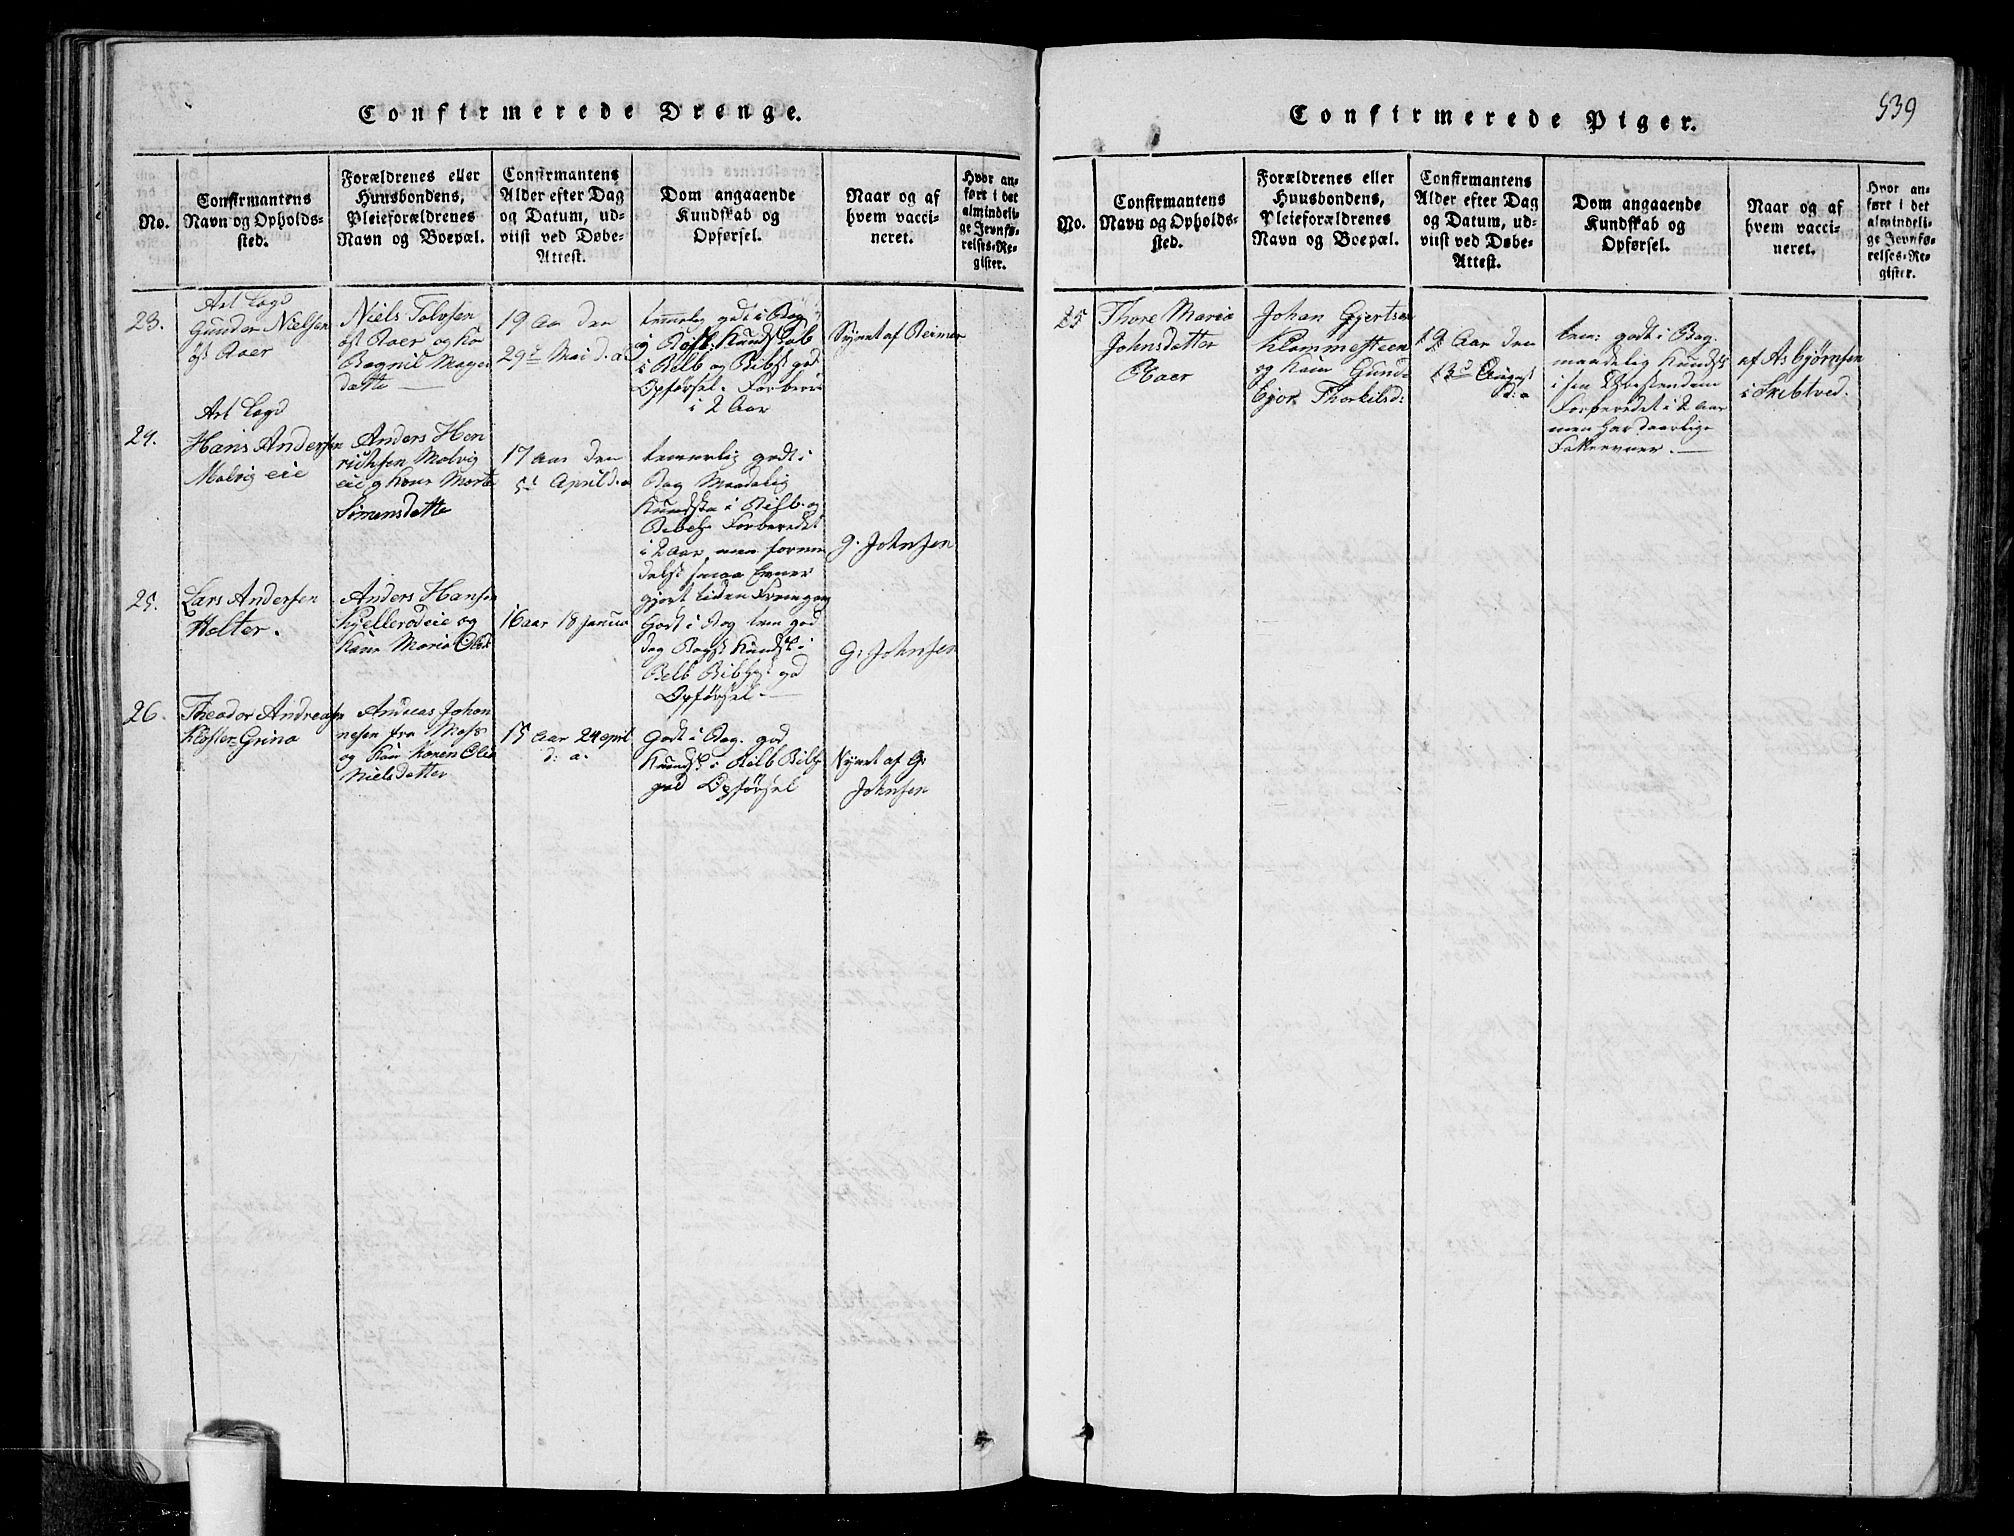 539
Confirmerede Drenge.
No.
Confirmantens
Navn og Opholds-
sted.
Forældrenes eller
Huusbondens,
Pleieforældrenes
Navn og Boepæl.
Confirmantens
Alder efter Dag
og Datum, ud-
viist ved Døbe-
Attest.
Dom angaaende
Kundskab og
Opførsel.
Naar og af
hvem vacci-
neret.
Hvor an-
ført i det
almindeli-
ge Jevnfø-
relses-Re-
gister.
23.
Gunder Nielsen
Niels Tolvsen
19 Aar den
29d Mai d.a.
i Relb og Bibh god
Opførsel. Forbere
i 2 Aar
Synet af Reimer
24.
Hans Andersen
Molvig eie
Anders Hen
richsen Molvig
eie og Kone Marte
Simensdatte
17 Aar den
5d April d:a
temmelig godt i
Bog Maadelig
Forberedet
i 2 Aar, men forme
delst smaa Evner
gjort liden Fremgang
G. Johnsen
25.
Lars Andersen
Holter.
Anders Hansen
Kjellerødeie og
Kone Maria
16 aar 18 Januar
Godt i Bog tem god
Opførsel.
G: Johnsen
26.
Theodor Andreasen
Kloster-Grina
Andreas Johan
nesen fra Moss
og Kone Karen
Nielsdatter
15 Aar 24 April
d: a.
Godt i Bog. god
Kundsk i Relb Bibh
god Opførsel
Synet af G:
Johnsen
Confirmerede Piger.
No.
Confirmantens
Navn og Opholds-
sted.
Forældrenes eller
Huusbondens,
Pleieforældrenes
Navn og Boepæl.
Confirmantens
Alder efter Dag
og Datum, ud-
viist ved Døbe-
Attest.
Dom angaaende
Kundskab og
Opførsel.
Naar og af
hvem vacci-
neret.
Hvor an-
ført i det
almindeli-
ge Jevnfø-
relses-Re-
gister.
25
Thore Maria
Johnsdatter
Johan Gjertsen
Klommesteen
og Kone Gunde
bjor Thorkilsd:
19 Aar den
13d August
d: a
tem: godt i Bog.
maadelig Kundsk
i sin Christendom
Forberedet i 2 Aar
men har daarlige
af Asbjørnsen
i Skibtved.